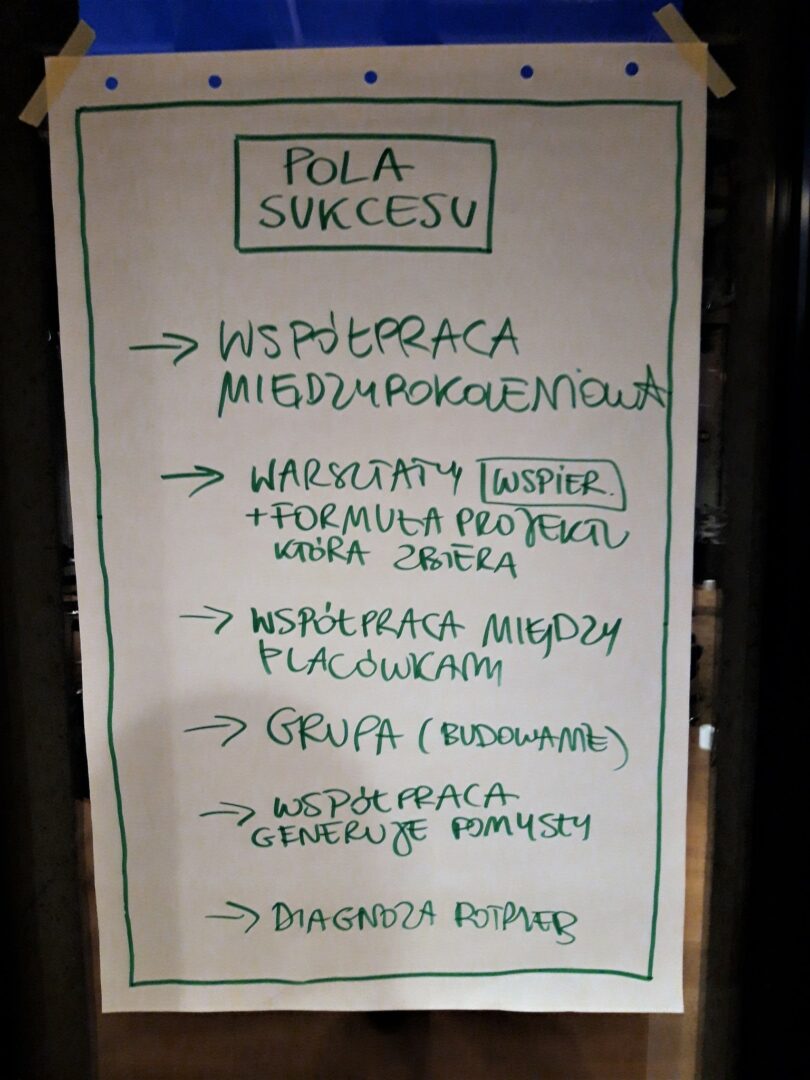 POLA
SUKCESU
→ WSPÓŁPRACA
MIĘDZYPOKOLENIOWA
→ WARSZTATY WSPIER.
+ FORMUŁA PROJEKTU
KTÓRA ZBIERA
→ WSPÓŁPRACA MIĘDZY
PLACÓWKAMI
→ GRUPA (BUDOWANIE)
→ WSPÓŁPRACA
GENERUJE POMYSŁY
→ DIAGNOZA POTRZEB